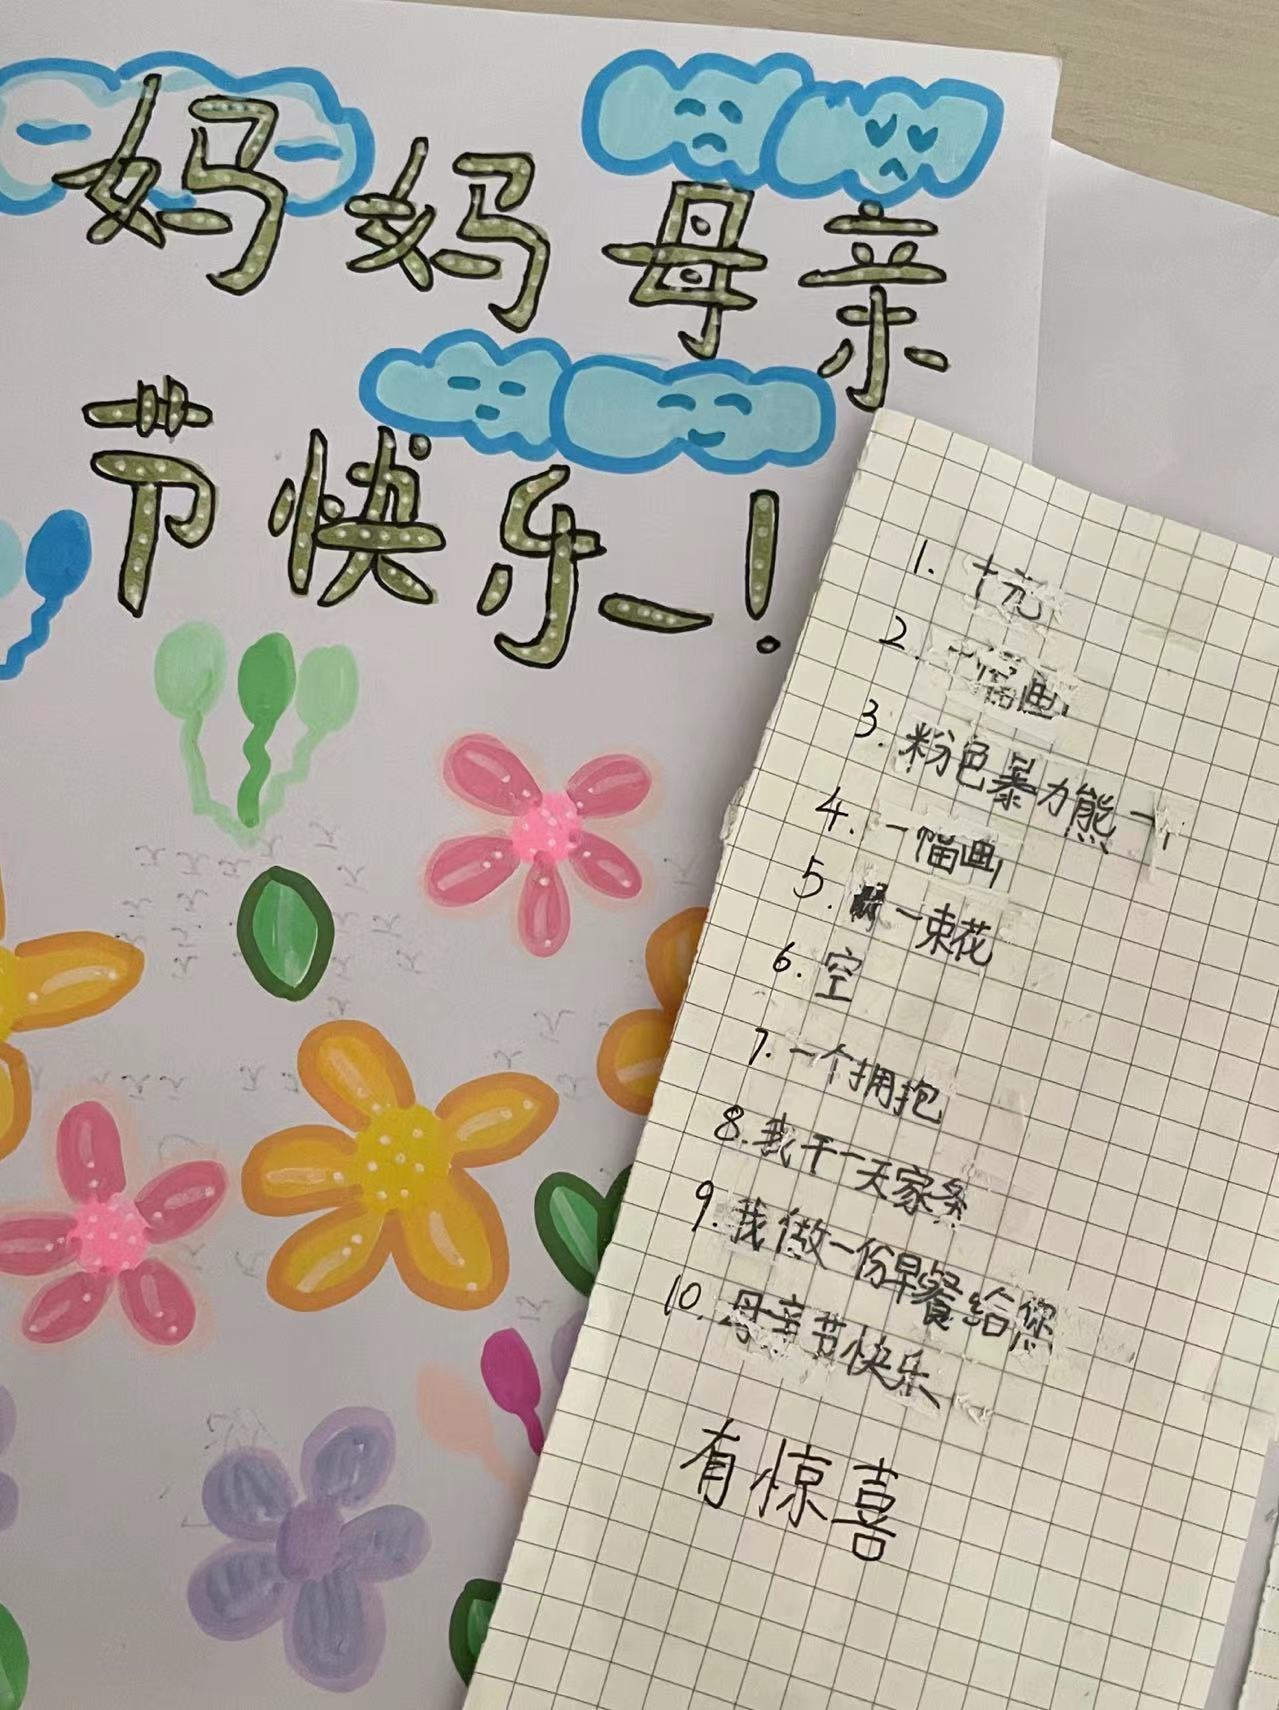 妈妈母亲
节快乐!
1. 十元
2. 一幅画
3. 粉色暴力熊一个
4. 一幅画
5. 一束花
6. 空
7. 一个拥抱
8. 我干一天家务
9. 我做一份早餐给您
10. 母亲节快乐
有惊喜